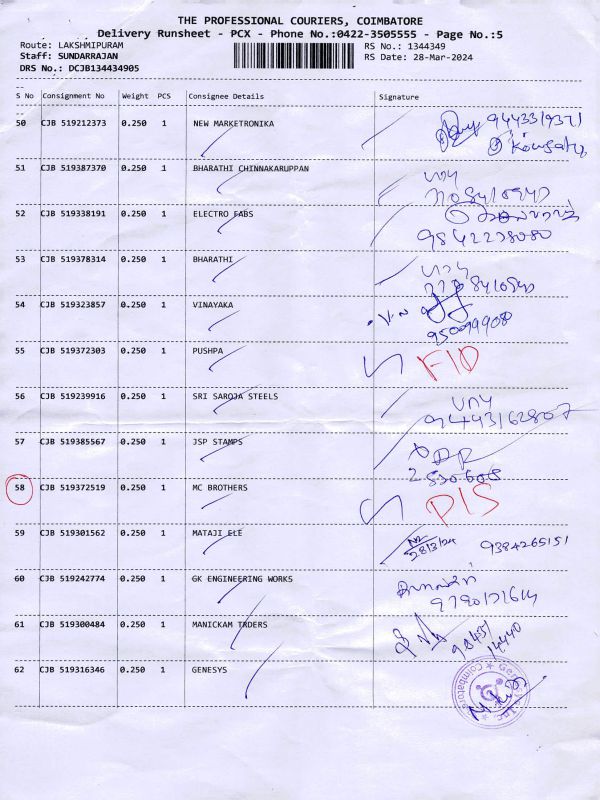 THE PROFESSIONAL COURIERS, COIMBATORE
Delivery Runsheet - PCX - Phone No.:0422-3505555 - Page No.:5
Route: LAKSHMIPURAM RS No.: 1344349
Staff: SUNDARRAJAN RS Date: 28-Mar-2024
DRS No.: DCJB134434905
S No Consignment No Weight PCS Consignee Details Signature
50 CJB 519212373 0.250 1 NEW MARKETRONIKA 9443319371
51 CJB 519387370 0.250 1 BHARATHI CHINNAKARUPPAN
52 CJB 519338191 0.250 1 ELECTRO FABS
9842238080
53 CJB 519378314 0.250 1 BHARATHI
54 CJB 519323857 0.250 1 VINAYAKA
55 CJB 519372303 0.250 1 PUSHPA
56 CJB 519239916 0.250 1 SRI SAROJA STEELS
57 CJB 519385567 0.250 1 JSP STAMPS
58 CJB 519372519 0.250 1 MC BROTHERS
59 CJB 519301562 0.250 1 MATAJI ELE 28/3/24 9384265151
60 CJB 519242774 0.250 1 GK ENGINEERING WORKS
61 CJB 519300484 0.250 1 MANICKAM TRDERS
62 CJB 519316346 0.250 1 GENESYS
Coimbatore